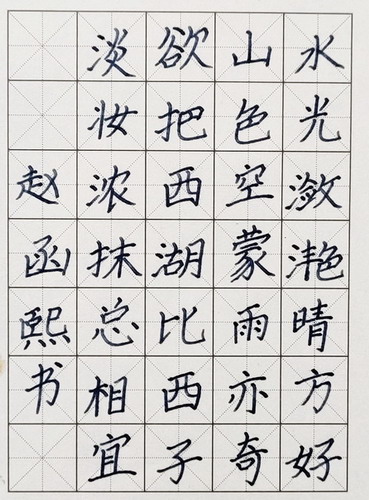 水光潋滟晴方好
山色空蒙雨亦奇
欲把西湖比西子
淡妆浓抹总相宜
赵函熙书